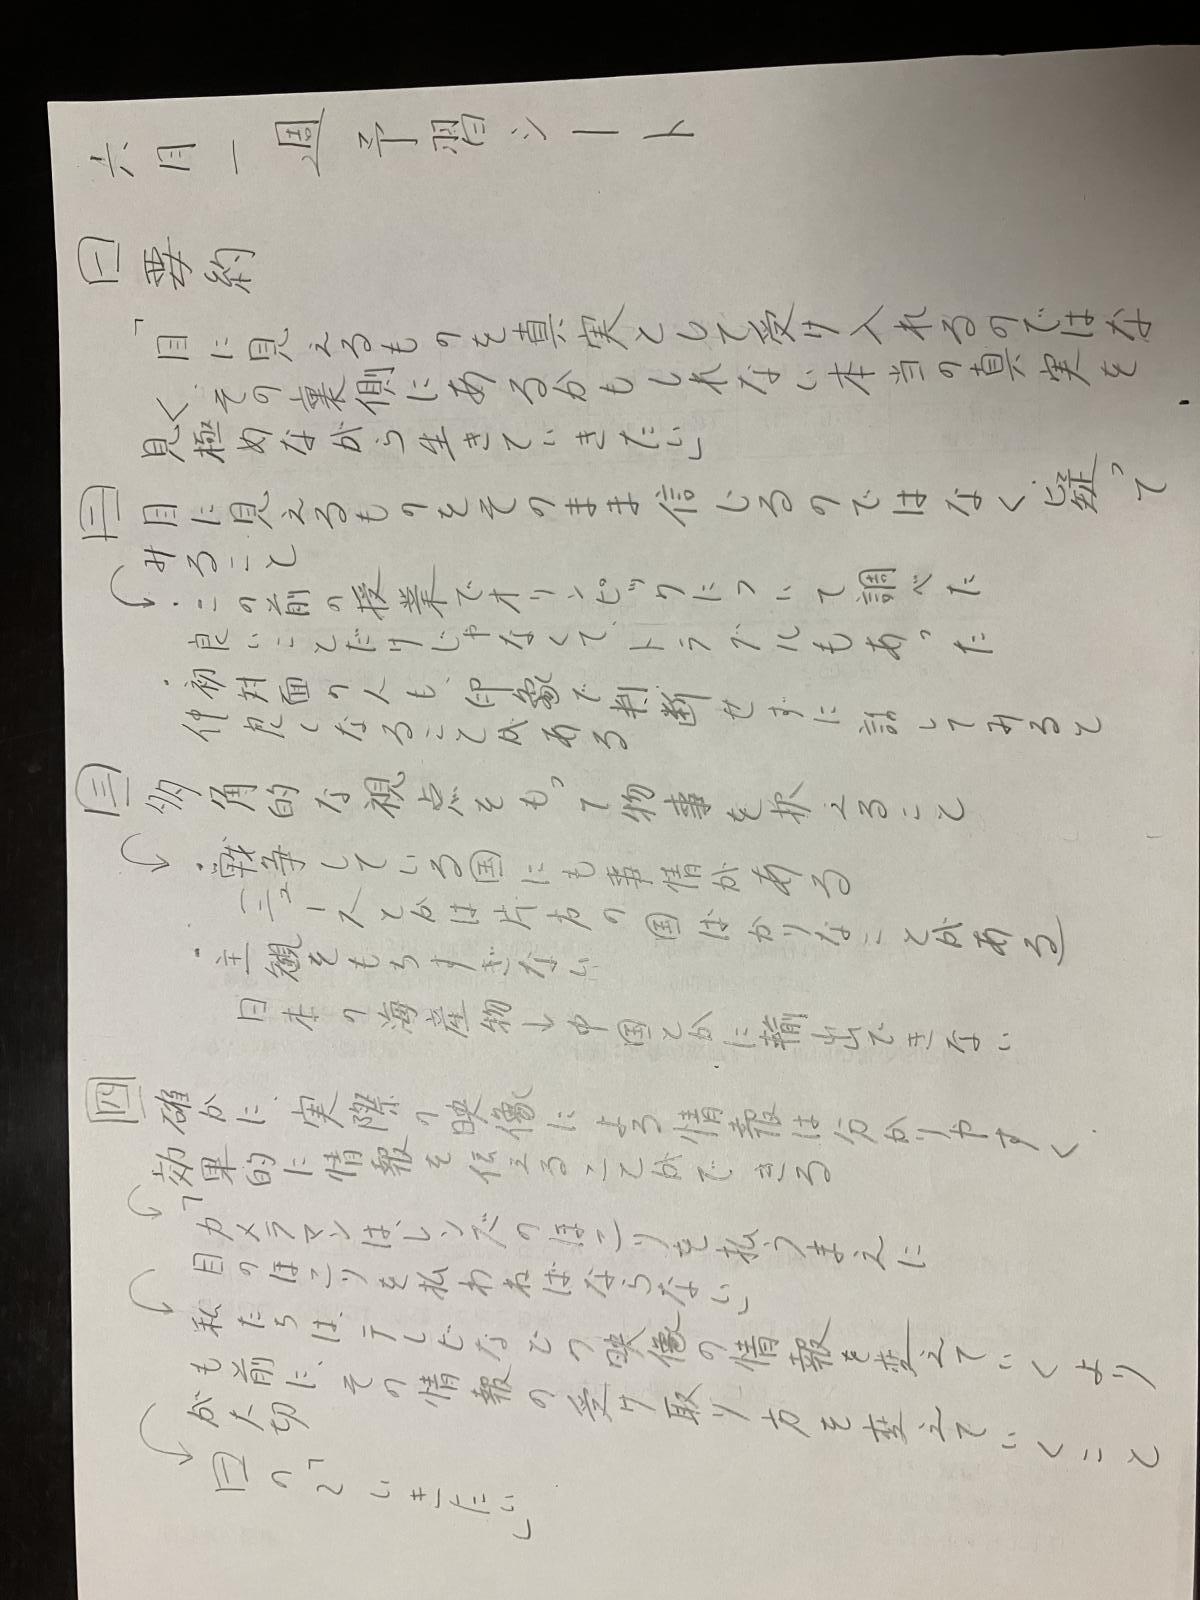 六月一週 予習シート
一 要約
「目に見えるものを真実として受け入れるのではな
く、その裏側にあるかもしれない本当の真実を
見極めながら生きていきたい」
二 目に見えるものをそのまま信じるのではなく、疑って
みること
・この前の授業でオリンピックについて調べた
良いことだけじゃなくて、トラブルもあった
・初対面の人も、印象で判断せずに話してみると
仲良くなることがある
三 多角的な視点をもって物事を捉えること
・戦争している国にも事情がある
(ニュースとかは片方の国ばかりなことがある)
・主観をもちすぎない
日本の海産物→中国とかに輸出できない
四 確かに、実際の映像による情報は分かりやすく、
効果的に情報を伝えることができる
「カメラマンは、レンズのほこりを払うまえに
目のほこりを払わねばならない」
私たちは、テレビなどの映像の情報を変えていくより
も前に、その情報の受け取り方を変えていくこと
が大切
一の「〜いきたい」